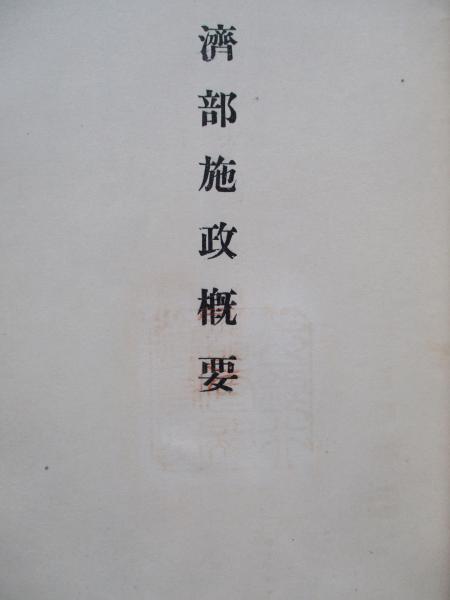 濟部施政概要